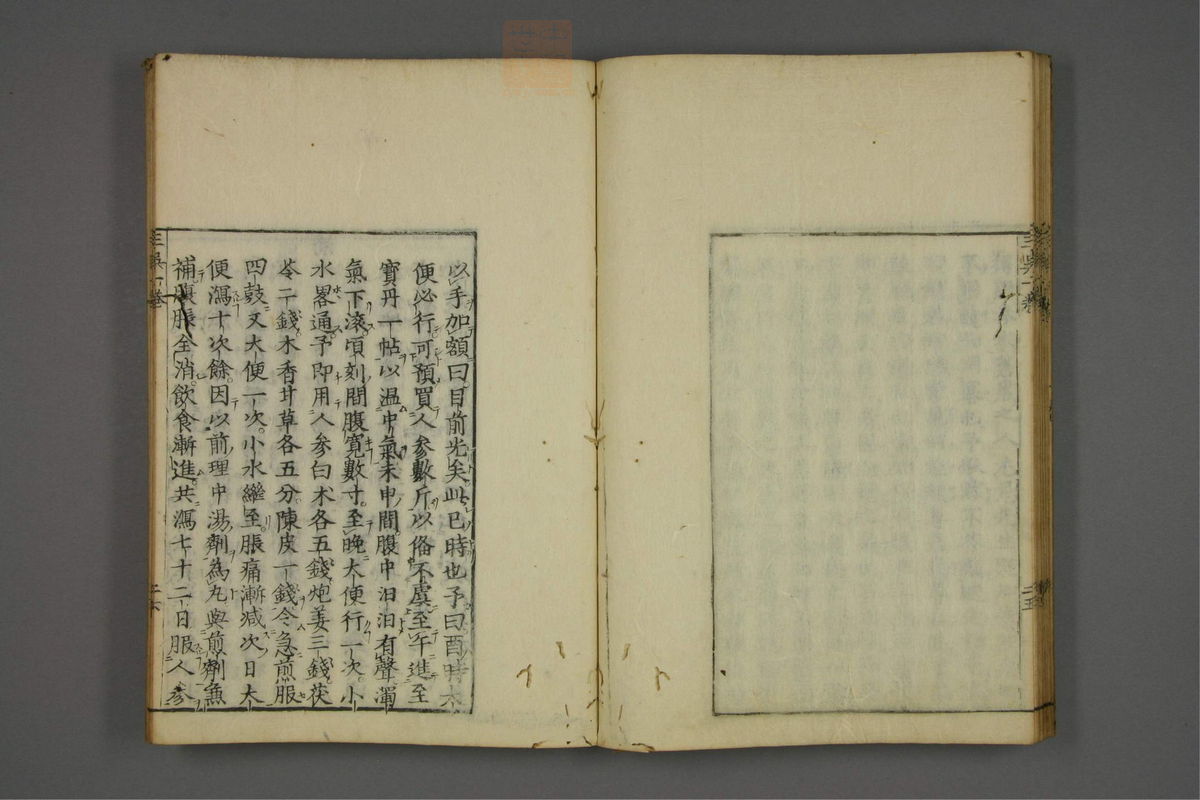 以手加額曰目前光矣此巳時也予曰酉時大
便必行可預買人參數斤以俻不虞至午進至
寶丹一帖以温中氣未申間腹中汩汩有聲濁
氣下滾頃刻間腹寛數寸至晩大便行一次小
水畧通予即用人參白术各五錢炮姜三錢茯
苓二錢木香甘草各五分陳皮一錢令急煎服
四鼓又大便一次小水繼至脹痛漸减次日大
便瀉十次餘因以前理中湯劑為丸與煎劑兼
補腹脹全消飲食漸進共瀉七十二日服人參